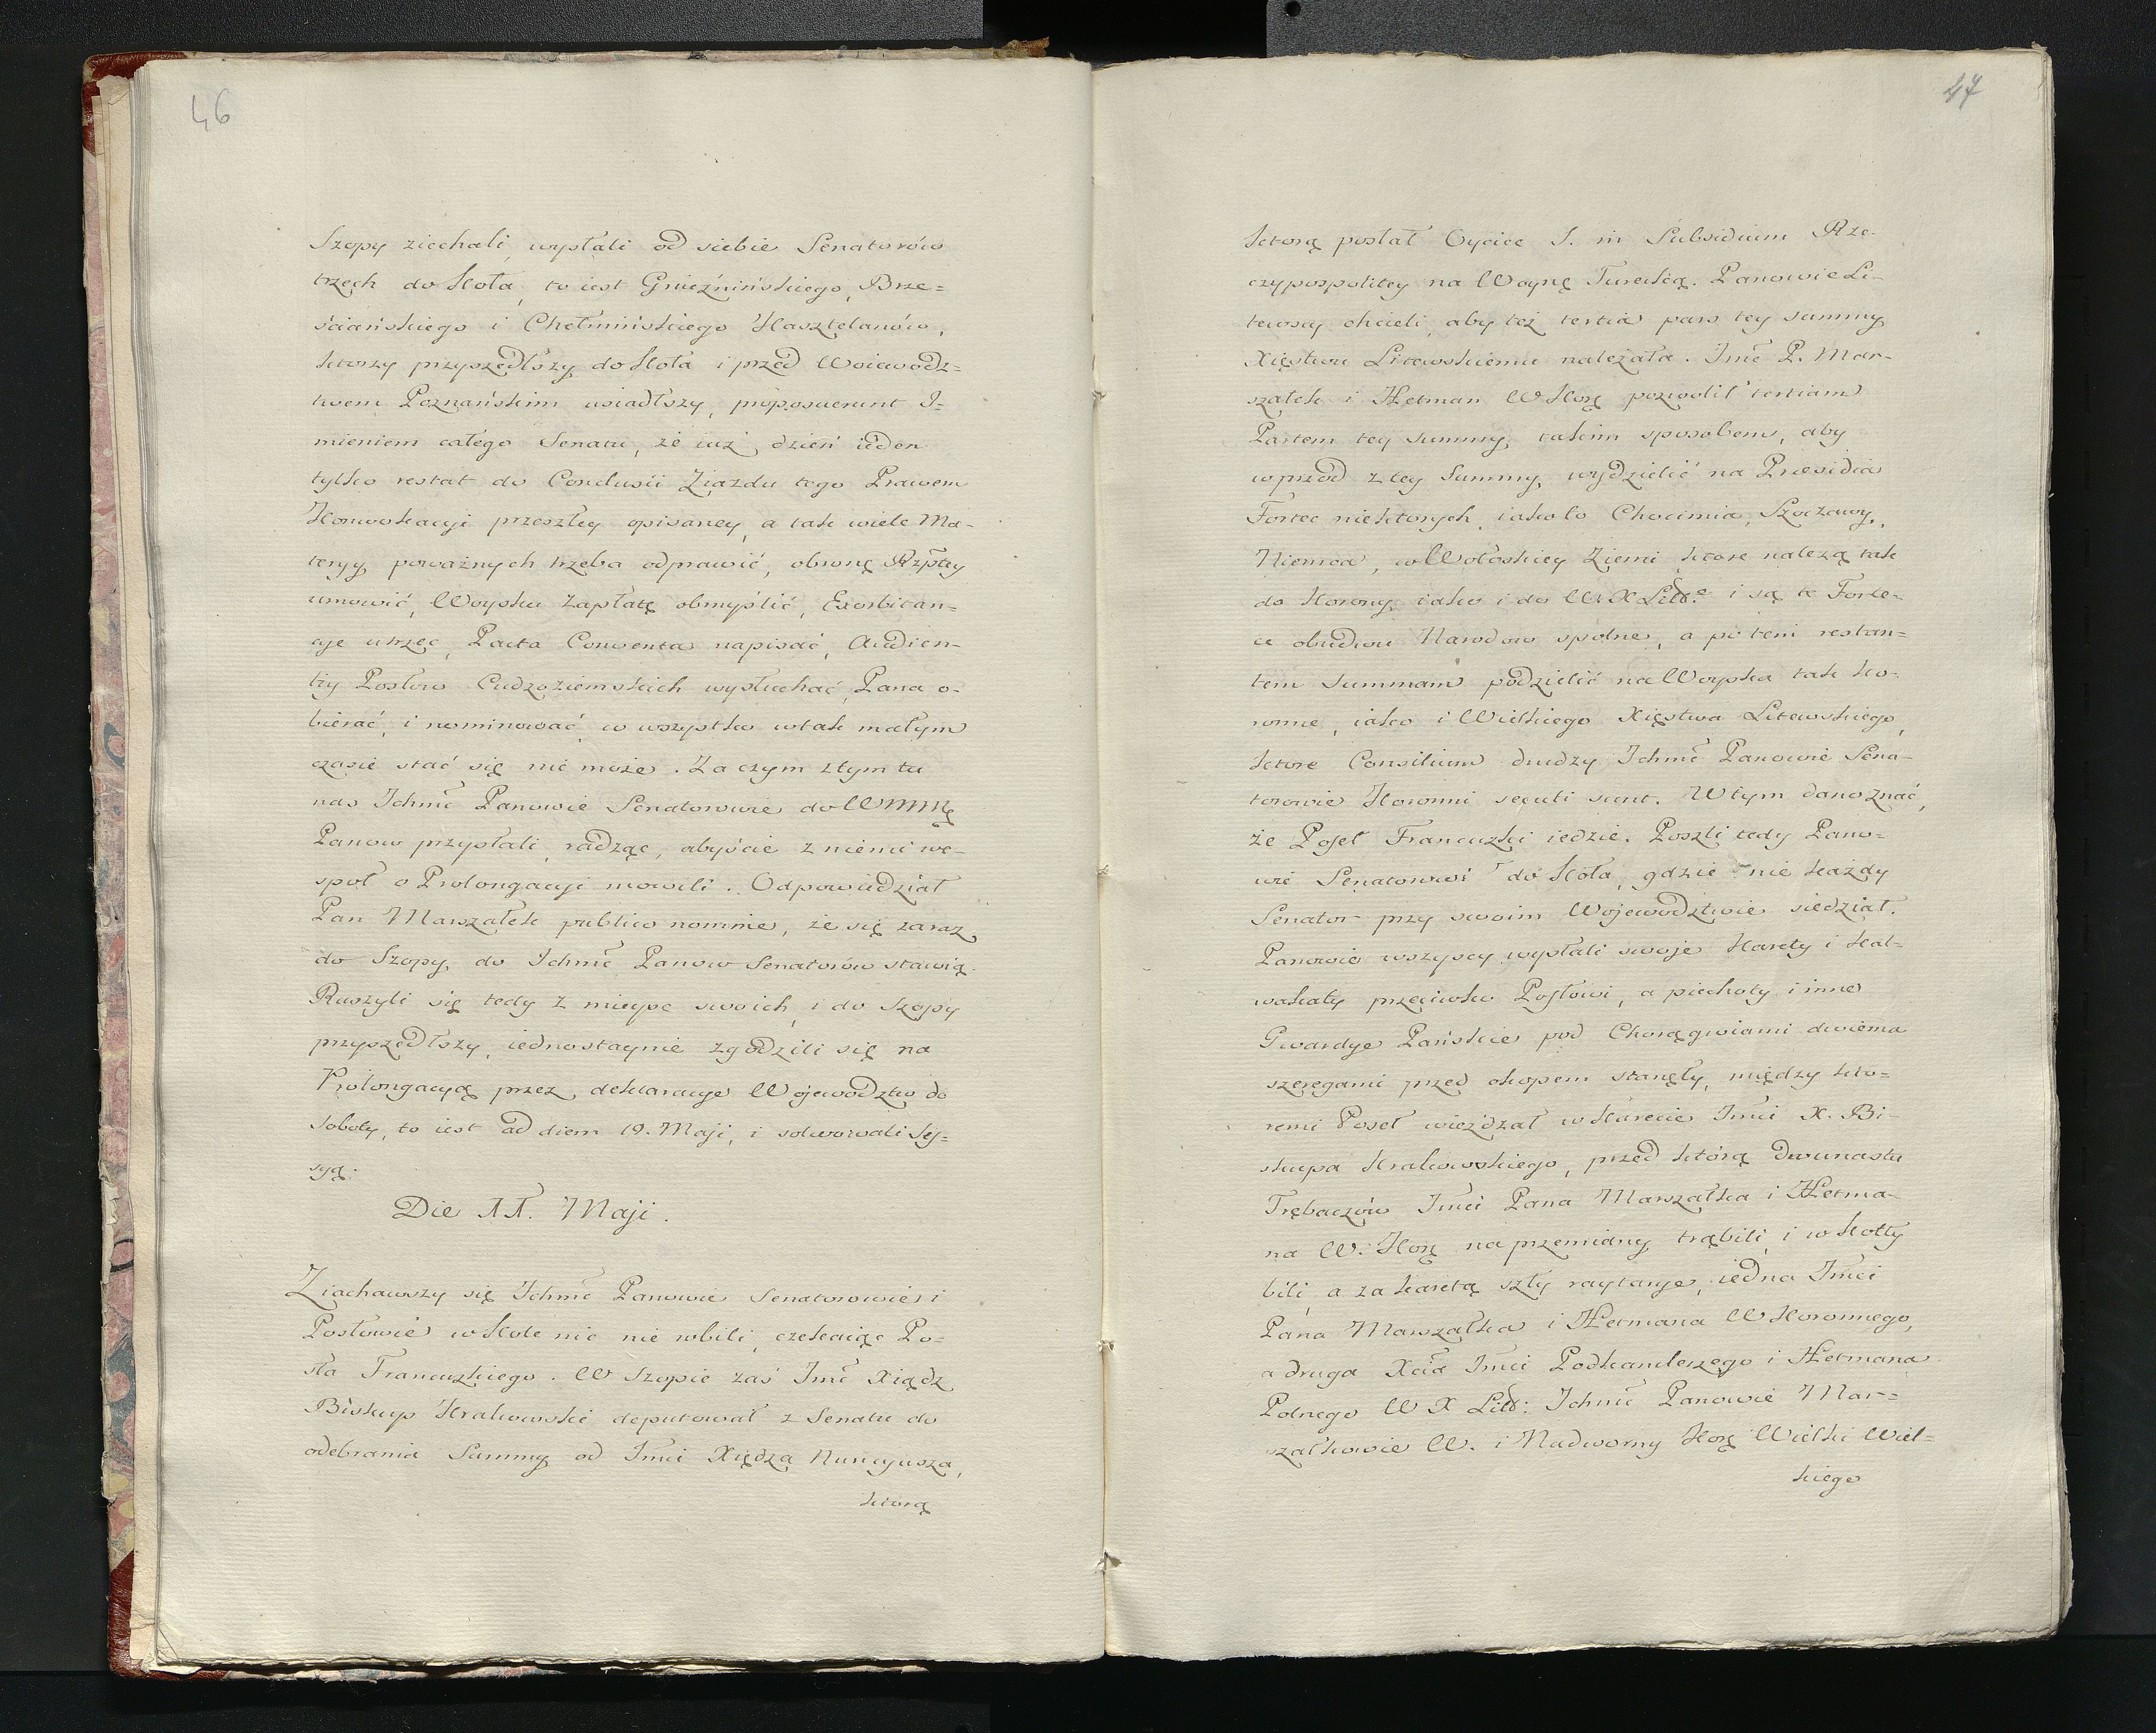 46
Szopy ziechali, wysłali od siebie Senatorów
trzech do Koła, to iest Gnieźnińskiego, Brze=
ściańskiego i Chełmińskiego Kasztelanów,
ktorzy przyszedłszy do Koła i przed Woiewodz=
twem Poznańskim usiadłszy, proposuerunt I=
mieniem całego Senatu, że iuż dzień ieden
tylko restat do Conclusii Ziazdu tego Prawem
Konwokacyi przeszłey opisaney, a tak wiele Ma-
teryy poważnych trzeba odprawić, obronę Rzptey
umowić, Woysku Zapłatę obmyślić, Exorbitan-
cye utrzeć, Pacta Conventa napisać, Audien-
cyy Posłow Cudzoziemskich wysłuchać, Pana o-
bierać, i nominować, co wszystko w tak małym
czasie stać się nie może. Za czym z tym tu
nas Ichmć Panowie Senatorowie do WMM
Panow przysłali, radząc, abyście z niemi we-
społ o Prolongacyi mowili. Odpowiedział
Pan Marszałek publico nomine, że się zaraz
do Szopy do Ichmć Panow Senatorów stawią.
Ruszyli się tedy z mieysc swoich, i do Szopy
przyszedłszy, iednostaynie zgodzili się na
Prolongacyą przez deklaracye Wojewodztw do
Soboty, to iest ad diem 19. Maji, i solwowali Ses=
syą.
Die 11. Maji.
Ziachawszy się Ichmć Panowie Senatorowie i
Posłowie w Kole nic nie robili, czekaiąc Po=
sła Francuzkiego. W Szopie zaś Imć Xiądz
Biskup Krakowski deputował z Senatu do
odebrania Summy od Imci Xiędza Nuncyusza,
ktorą
47
ktorą posłał Oyciec S. in Subsidium Rze-
czypospolitey na Woynę Turecką. Panowie Li-
tewscy chcieli, aby też tertia pars tey summy
Xięstwu Litewskiemu należała. Imć P. Mar-
szałek i Hetman W Kor pozwolił tertiam
Partem tey summy, takim sposobem, aby
wprzod z tey Summy wydzielić na Praesidia
Fortec niektorych, iako to Chocimia, Szoczawy,
Niemca, w Wołoskiey Ziemi, ktore należą tak
do Korony iako i do W. X Litt. i są te Forte-
ce obudwu Narodow spolne, a potem restan=
tem summam podzielić na Woyska tak Ko-
ronne, iako i Wielkiego Xięstwa Litewskiego,
ktore Consilium drudzy Ichmć Panowie Sena-
torowie Koronni secuti sunt. W tym dano znać,
że Poseł Francuzki iedzie. Poszli tedy Pano=
wie Senatorowi do Koła, gdzie nie każdy
Senator przy swoim Wojewodztwie siedział.
Panowie wszyscy wysłali swoje Karety i Kal=
wakaty przeciwko Posłowi, a piechoty i inne
Gwardye Pańskie pod Chorągwiami dwiema
szeregami przed okopem stanęły, między kto=
remi Poseł wieżdzał w Karecie Imci X. Bi-
skupa Krakowskiego, przed którą dwunastu
Trębaczów Imci Pana Marszałka i Hetma-
na W. Kor na przemiany trąbili, i w Kotły
bili, a za karetą szły raytarye, iedna Imci
Pana Marszałka i Hetmana W Koronnego,
a druga Xcia Imci Podkanclerzego i Hetmana
Polnego W X Litt: Ichmć Panowie Mar-=
szałkowie W. i Nadworny Kor Wielki Wiel=
kiego